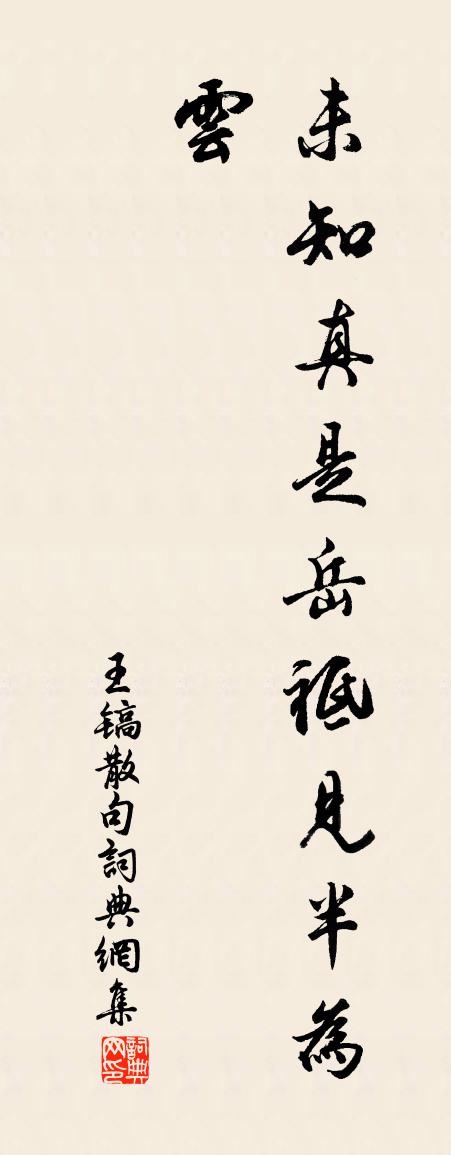 未知真是岳祗見半為
雲
王镐散句詞典網集
詞典网印